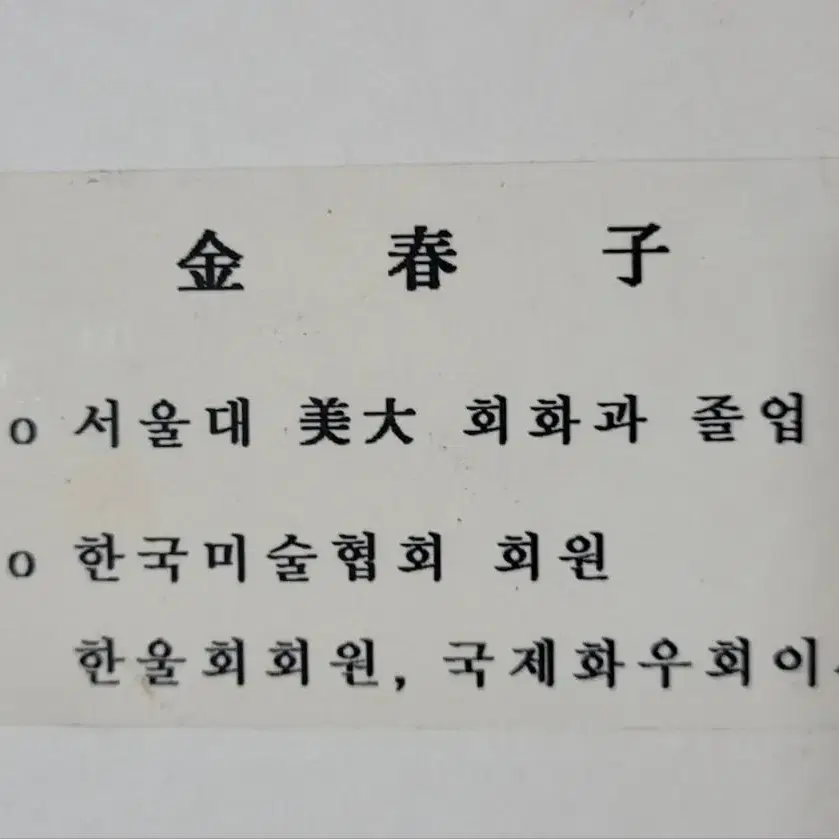 金 春 子
o 서울대 美大 회화과 졸업
o 한국미술협회 회원
한울회회원, 국제화우회이